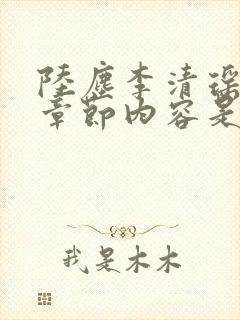 陸塵李清瑤
章節內容是
我是木木